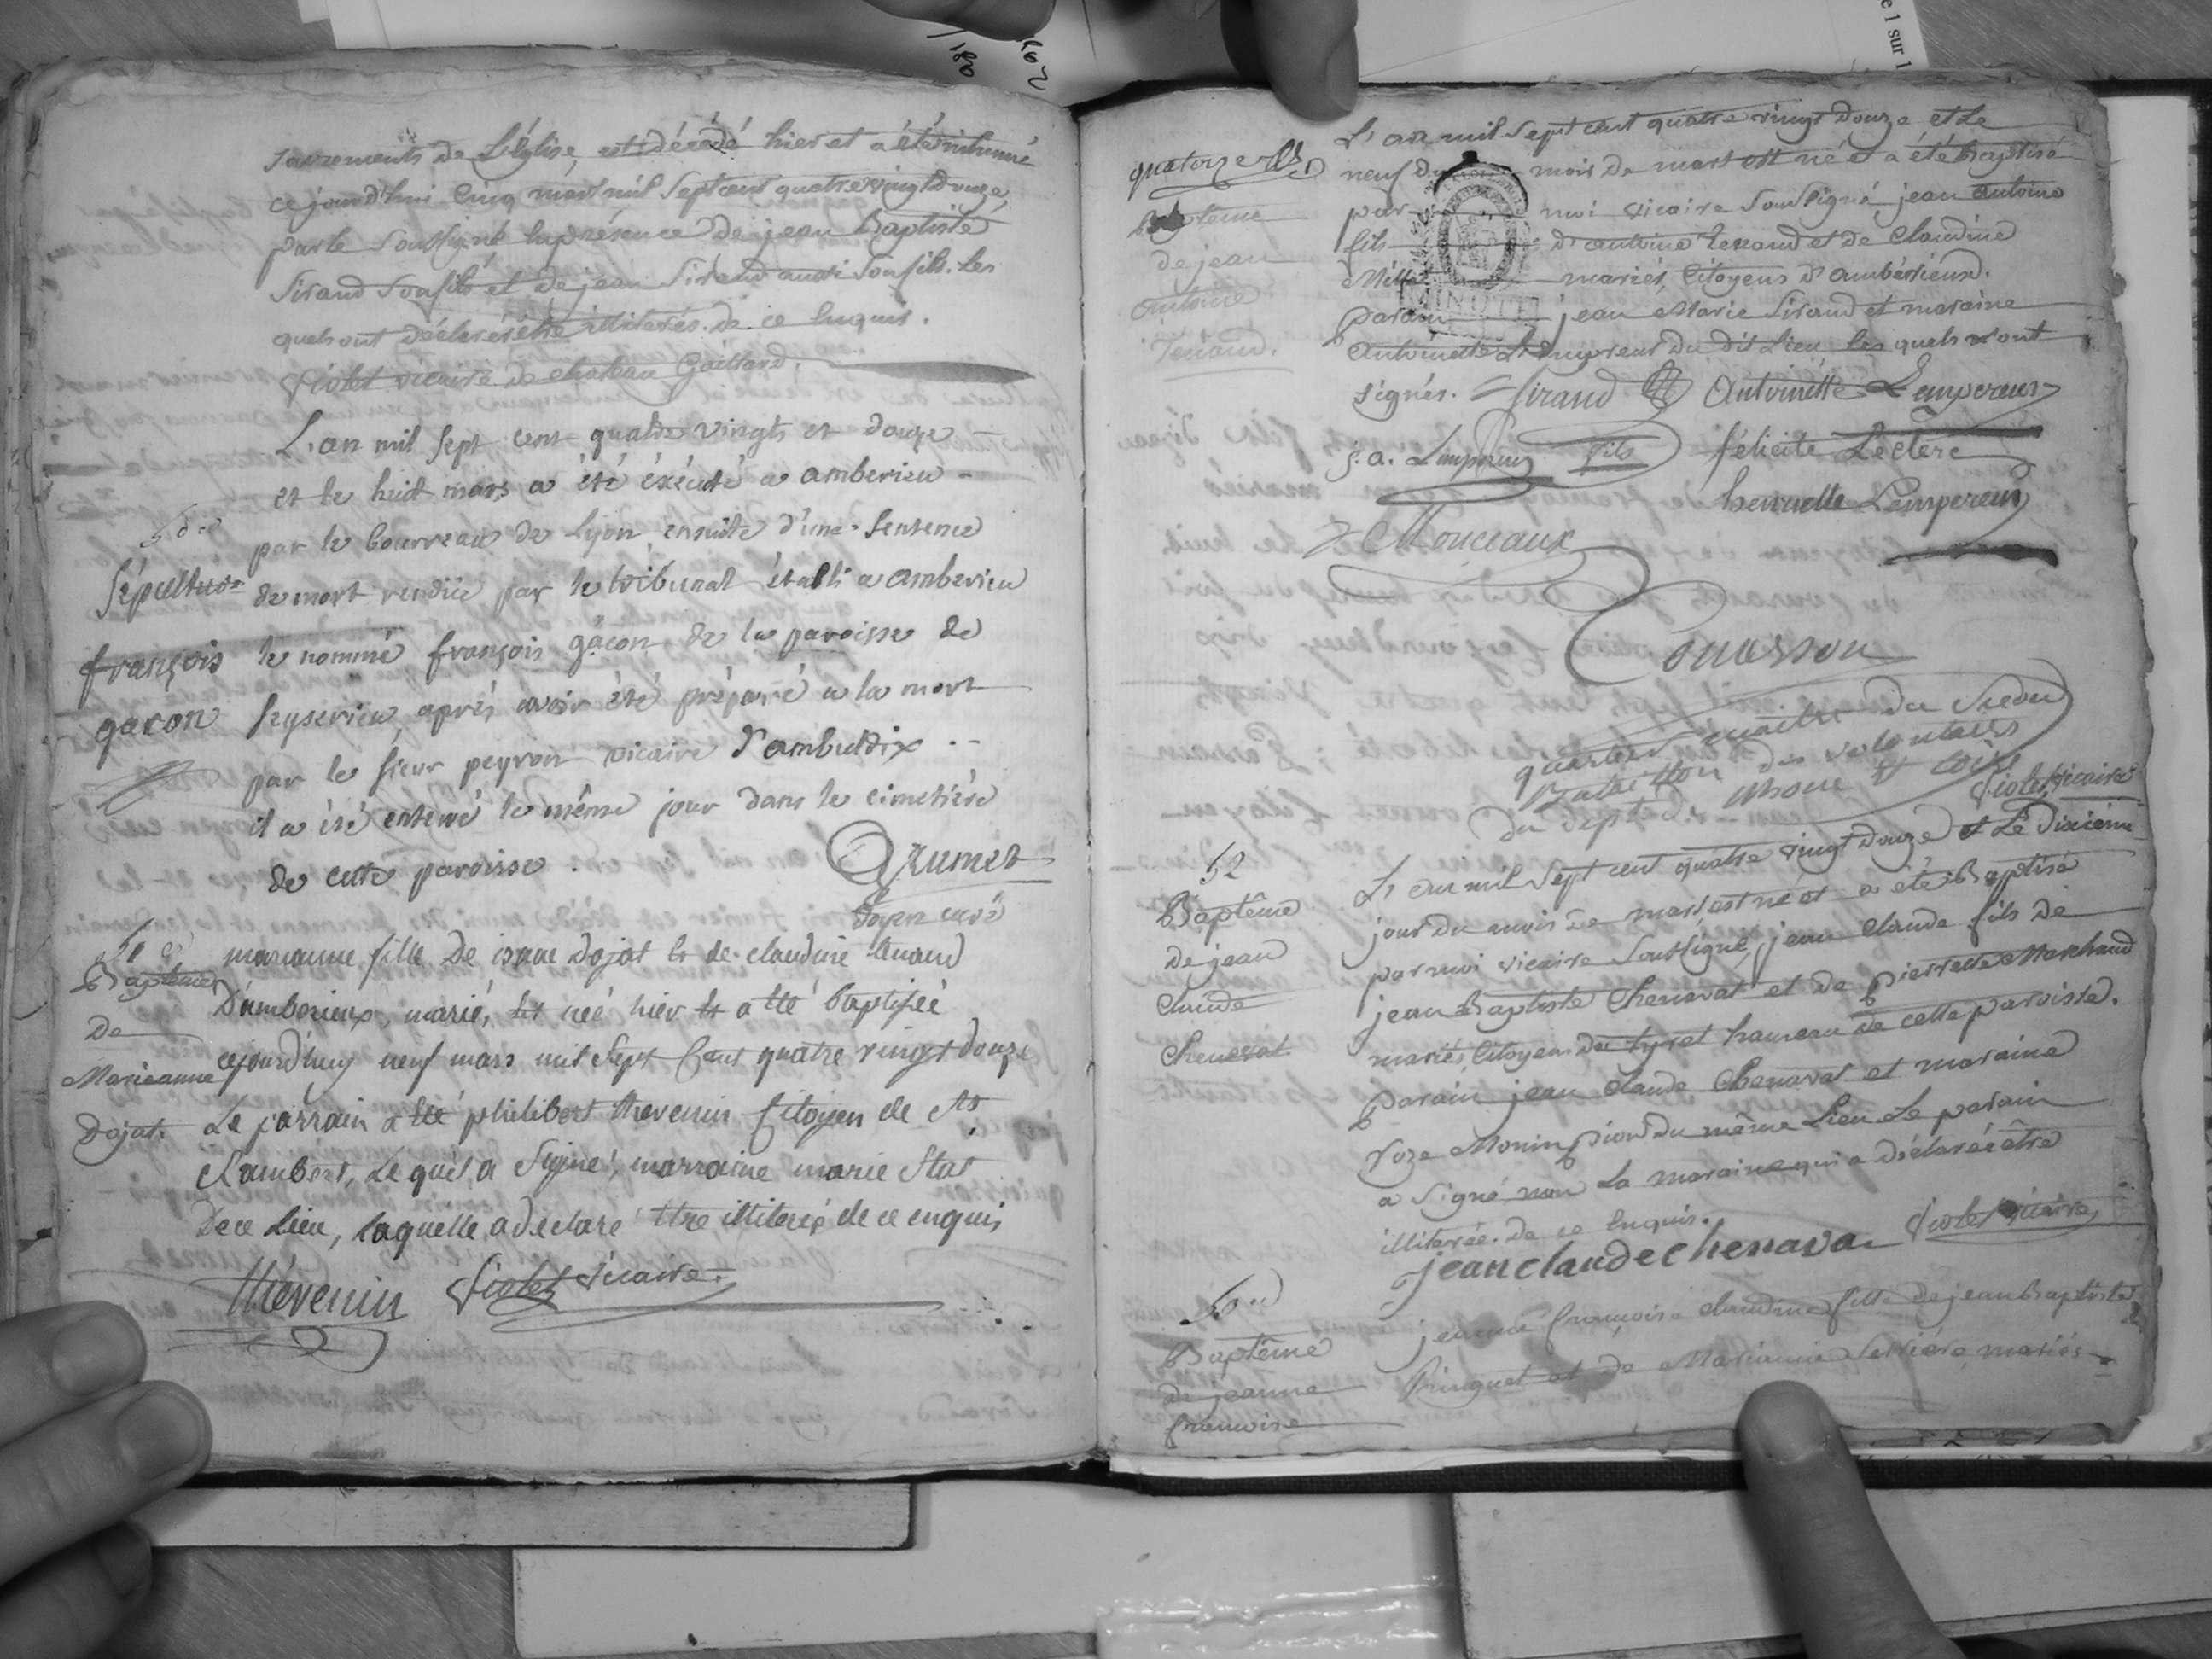 sacrements de L'église, est décédé hier et a été inhumé
ce jourd'hui Cinq mars mil Sept cent quatre vingt Douze,
par le Soussigné En présence de jean Baptiste
Sirand Son fils et de jean Sirand aussi Son fils. les
quels ont déclarés être illiterés. de ce Enquis.
Violet vicaire de chateau Gaillard.
L'an mil sept cent quatre vingts et douze
et le huit mars a été éxécuté a amberieu
par le bourreau de Lyon ensuite d'une Sentence
de mort rendüe par le tribunal établi a amberieu
le nommé françois gacon de la paroisse de
seyserieu, aprés avoir été préparé a la mort
par le sieur peyron vicaire d'ambutrix
il a été enterré le même jour dans le cimetiére
de cette paroisse.
50e
Sépulture
françois
gacon
Grumet
doyen curé
51e
Baptême
De
Marieanne
Dojat.
marianne fille de isaac dojat et de claudine tenand
D'amberieux, marié, est néé hier et a été baptiséé
cejourd'huy neuf mars mil Sept Cent quatre vingt douze
Le parrain a été philibert thevenin Citoyen de St
Rambert, Le quel a Signé, marraine marie
De ce Lieu, laquelle a declaré être illiteréé de ce enquis
thévenin Violet Vicaire.
quatorze
Baptême
de jean
Antoine
Tenand.
L'an mil Sept cent quatre vingt Douze et Le
neuf du mois de mars est né et a été Baptisé
par moi vicaire Soussigné, jean antoine
fils d'antoine Tenand et de Claudine
Millet mariés, Citoyens d'ambérieux.
Parain jean Marie Sirand et maraine
Antoinette Lempereur du dit Lieu les quels ont
signés. Sirand Antoinette Lempereur
j. a. Lempereur fils félicité Leclerc
henriette Lempereur
Mouceaux
quartier maitre du
Bataillon des volontaires
du dept. du Rhone et Loire
Violet, vicaire
52
Baptême
de jean
Claude
Chenavat.
L'an mil Sept cent quatre vingt Douze et Le Dixieme
jour du mois de mars est né et a été Baptisé
par moi vicaire Soussigné, jean Claude fils de
jean Baptiste Chenavat et de pierrette Marchand
mariés, Citoyens du tyret hameau de cette paroisse.
Parain jean Claude Chenavat et maraine
Roze Monin du même Lieu Le parain
a Signé non La maraine qui a Déclaréé être
illiteréé. de ce Enquis.
jean claude chenava Violet vicaire
Baptême
de jeanne
francoise
jeanne francoise claudine fille de jean Baptiste
et de Marianne mariés